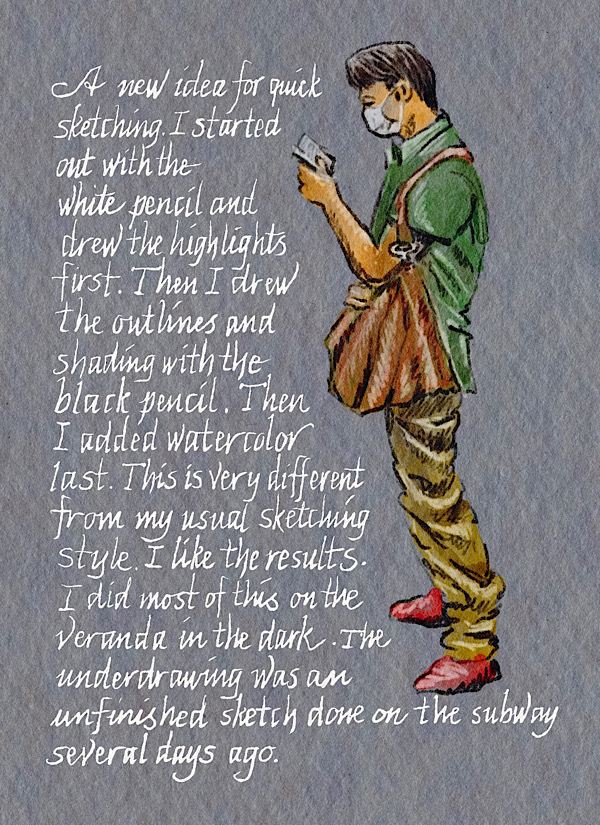 A new idea for quick
sketching. I started
out with the
white pencil and
drew the highlights
first. Then I drew
the outlines and
shading with the
black pencil. Then
I added watercolor
last. This is very different
from my usual sketching
style. I like the results.
I did most of this on the
veranda in the dark. The
underdrawing was an
unfinished sketch done on the subway
several days ago.